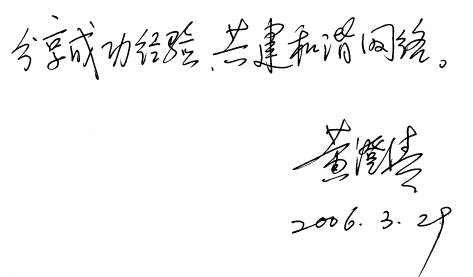 分享成功经验、共建和谐网络。
黄澄清
2006.3.29